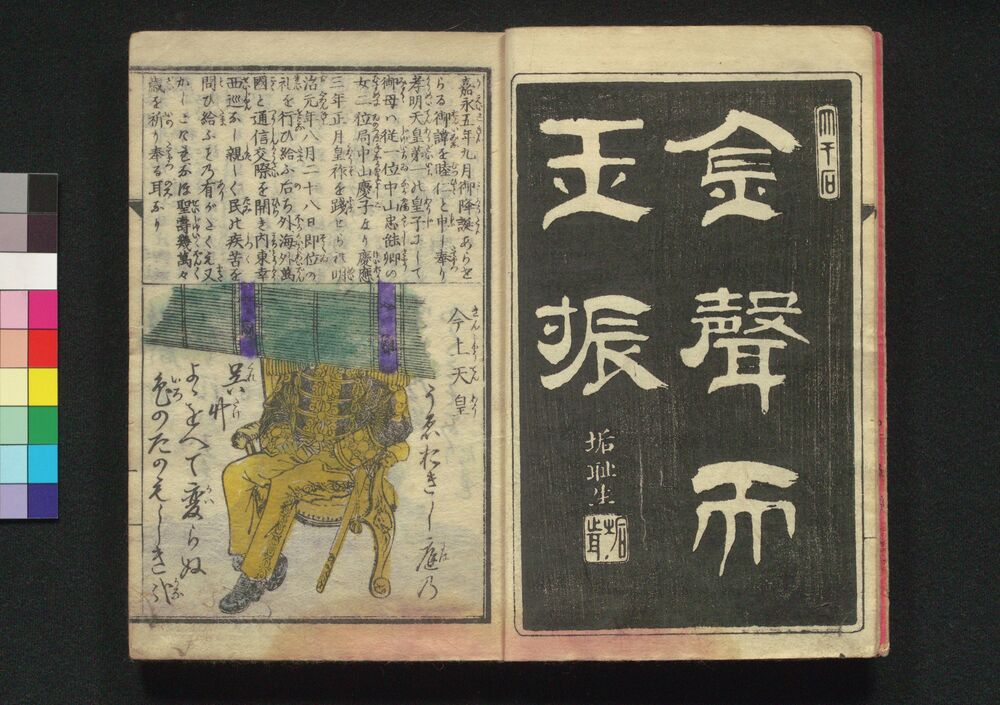 金聲而
玉振
嘉永五年九月御降誕あらせ
らる御諱を睦仁と申し奉り
孝明天皇第一の皇子にして
御母ハ従一位中山忠能卿の
女二位局中山慶子なり慶應
三年正月皇祚を踐せられ明
治元年八月二十八日即位の
礼を行ひ給ふ后ち外海外萬
國と通信交際を開き内東幸
西巡なし親しく民の疾苦を
問ひ給ふ
聖壽幾萬々
歳を祈り奉る耳なり
今上天皇
うゑおきし庭乃
呉竹
よゝをへて変らぬ
色のたのもしき